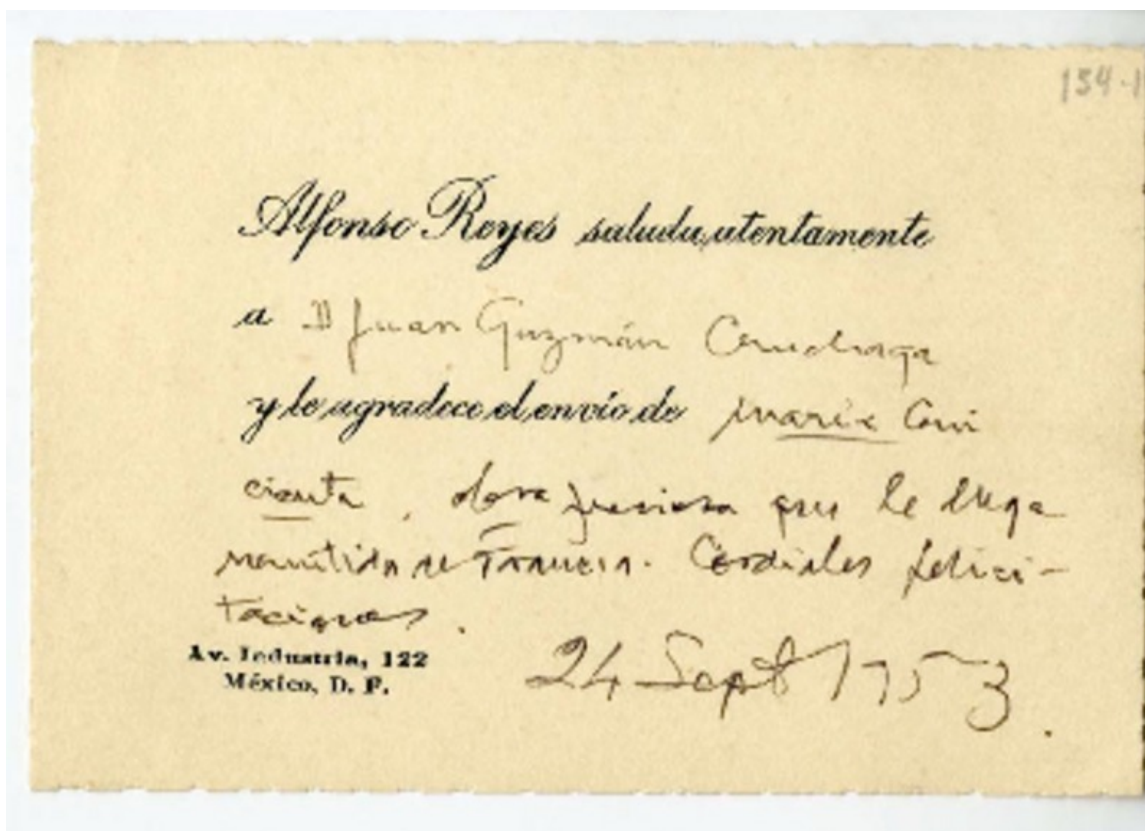 134-1
Alfonso Reyes saluda atentamente
a D Juan Guzmán Cruchaga
y le agradece el envío de María Ceni
cienta, obra preciosa que le llega
remitida de Francia. Cordiales felici-
taciones.
Av. Industria, 122
México, D. F.
24 Sept 1953.